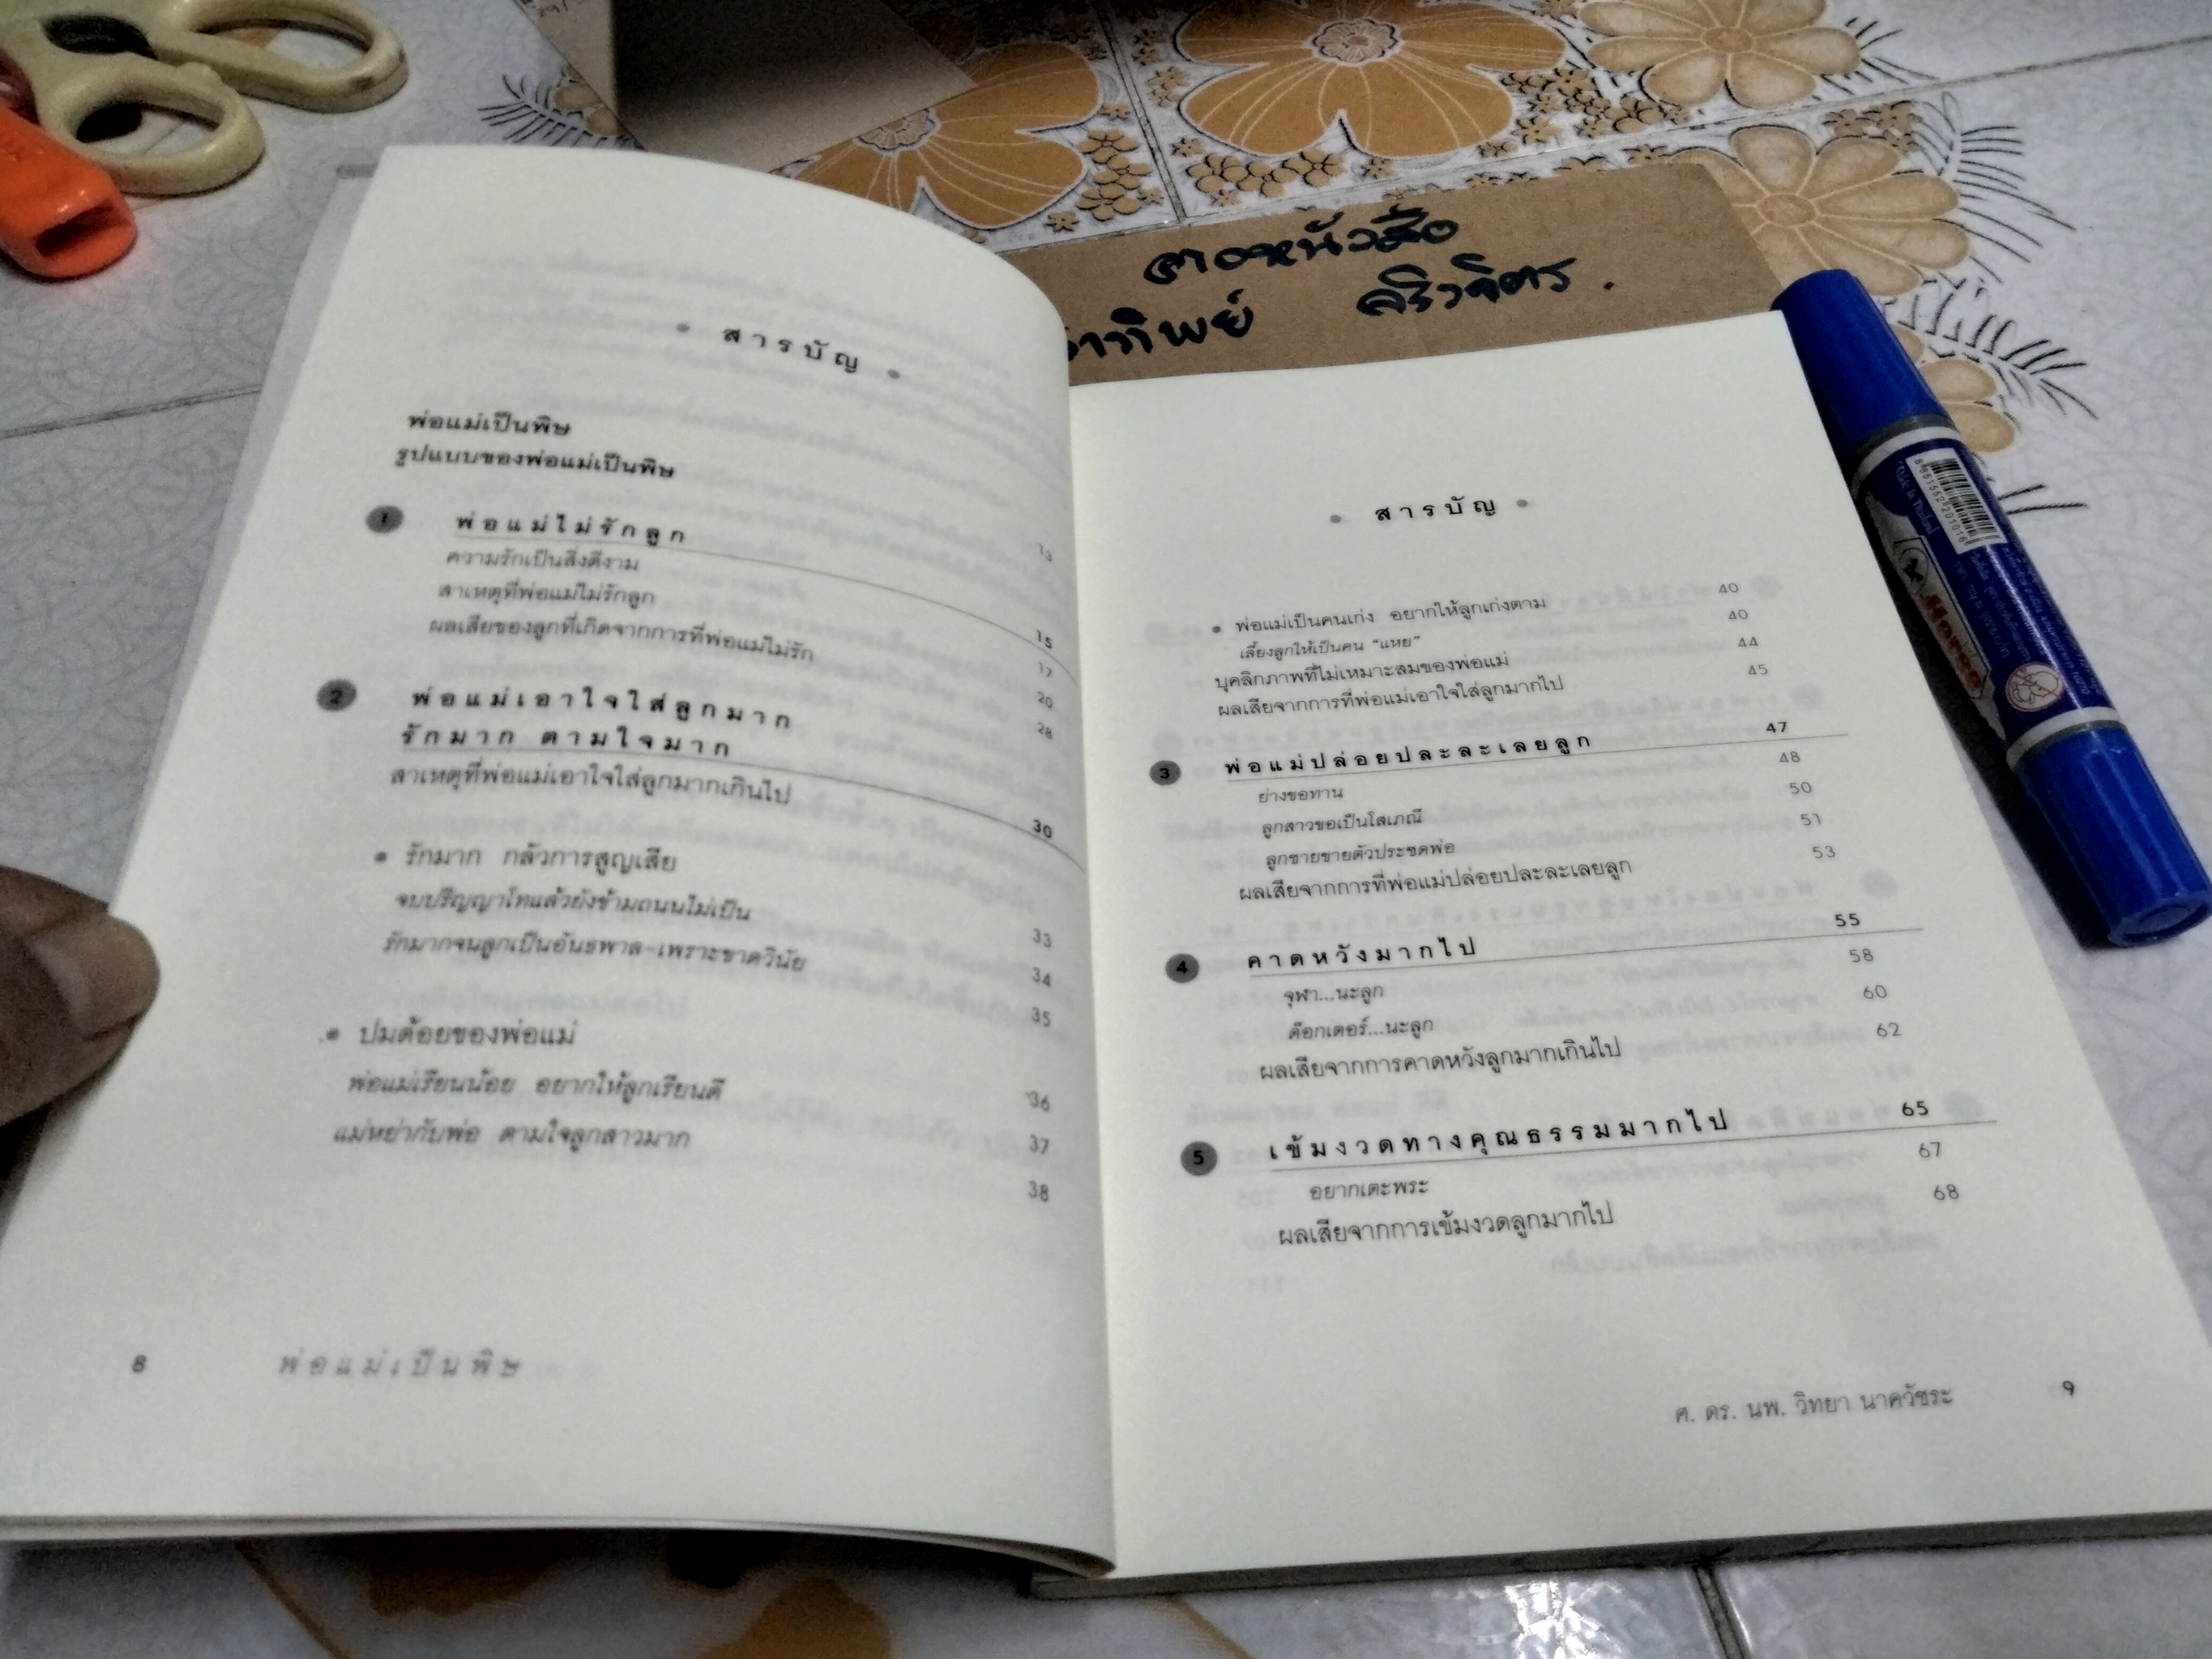 • สารบัญ •
พ่อแม่เป็นพิษ
รูปแบบของพ่อแม่เป็นพิษ 13
1 พ่อแม่ไม่รักลูก 15
ความรักเป็นสิ่งดีงาม 17
สาเหตุที่พ่อแม่ไม่รักลูก 20
ผลเสียของลูกที่เกิดจากการที่พ่อแม่ไม่รัก 28
2 พ่อแม่เอาใจใส่ลูกมาก
รักมาก ตามใจมาก 30
สาเหตุที่พ่อแม่เอาใจใส่ลูกมากเกินไป 33
• รักมาก กลัวการสูญเสีย 34
จบปริญญาโทแล้วยังข้ามถนนไม่เป็น 35
รักมากจนลูกเป็นอันธพาล-เพราะขาดวินัย 36
• ปมด้อยของพ่อแม่ 37
พ่อแม่เรียนน้อย อยากให้ลูกเรียนดี 38
แม่หย่ากับพ่อ ตามใจลูกสาวมาก
8 พ่อแม่เป็นพิษ
• สารบัญ •
• พ่อแม่เป็นคนเก่ง อยากให้ลูกเก่งตาม 40
เลี้ยงลูกให้เป็นคน “แหย” 40
บุคลิกภาพที่ไม่เหมาะสมของพ่อแม่ 44
ผลเสียจากการที่พ่อแม่เอาใจใส่ลูกมากไป 45
3 พ่อแม่ปล่อยปละละเลยลูก 47
ย่างขอทาน 48
ลูกสาวขอเป็นโสเภณี 50
ลูกชายขายตัวประชดพ่อ 51
ผลเสียจากการที่พ่อแม่ปล่อยปละละเลยลูก 53
4 คาดหวังมากไป 55
จุฬา...นะลูก 58
ด๊อกเตอร์...นะลูก 60
ผลเสียจากการคาดหวังลูกมากเกินไป 62
5 เข้มงวดทางคุณธรรมมากไป 65
อยากเตะพระ 67
ผลเสียจากการเข้มงวดลูกมากไป 68
ศ. ดร. นพ. วิทยา นาควัชระ 9
Horse
8851552201016